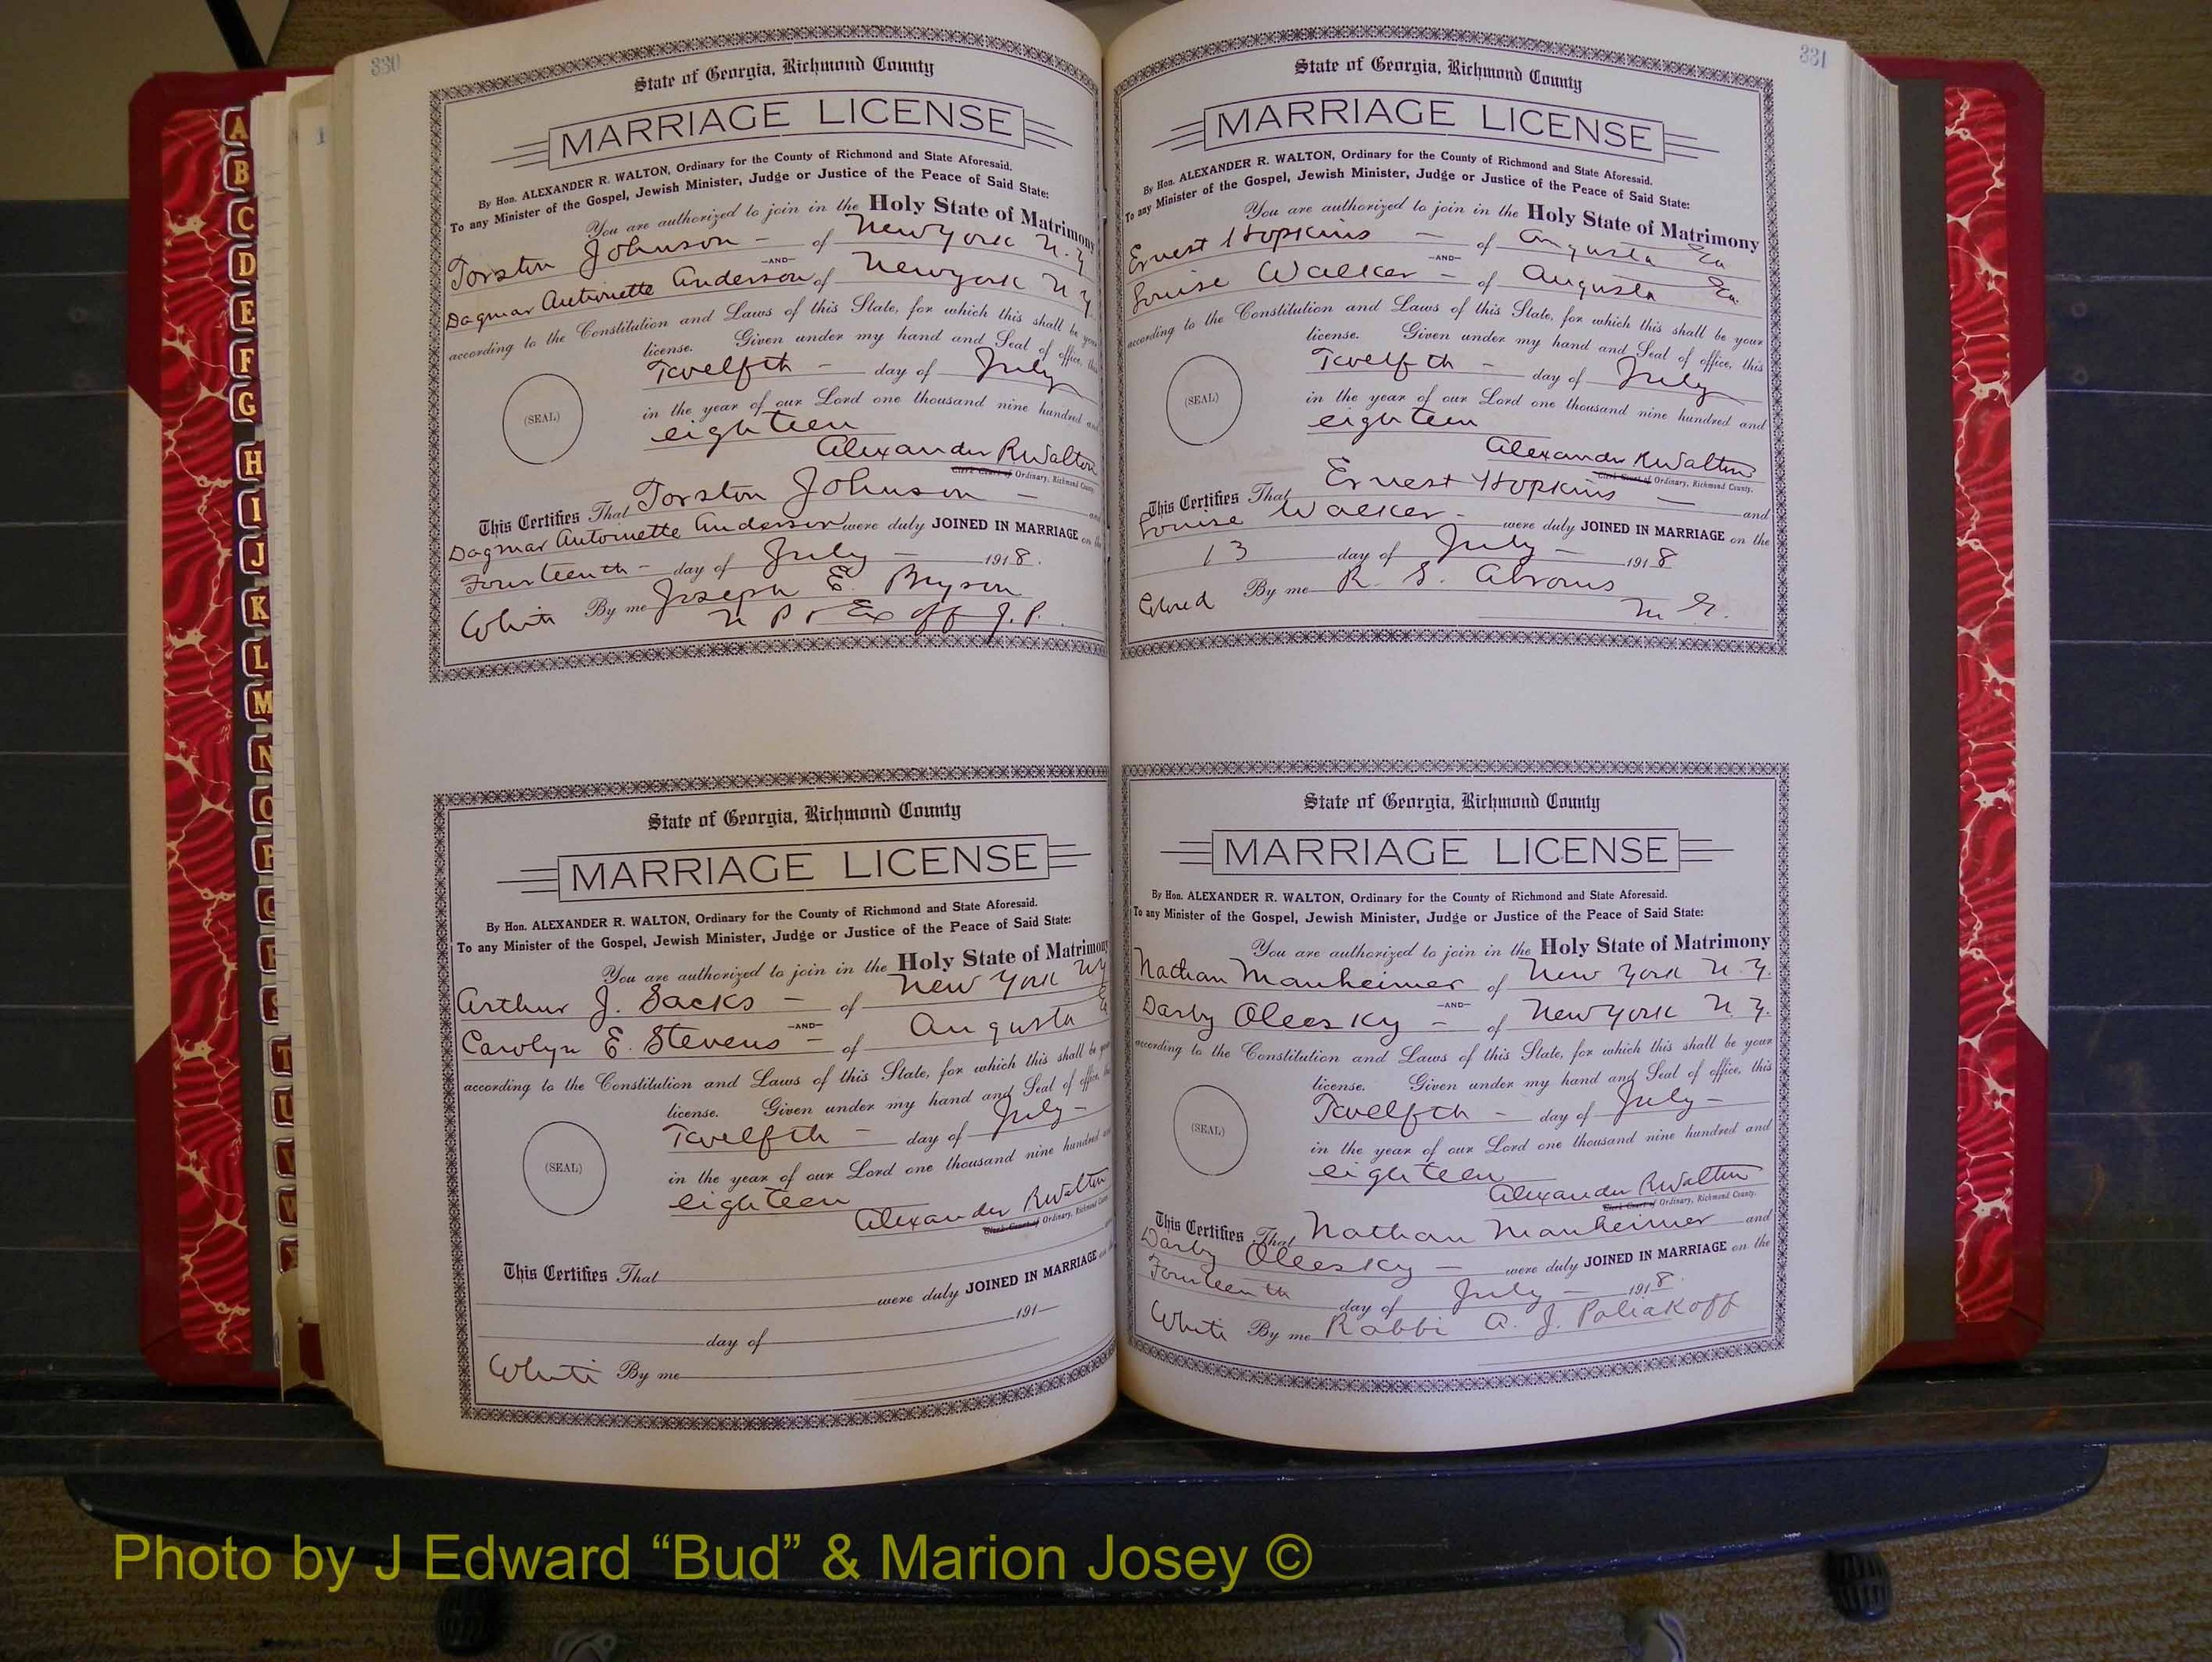 330
State of Georgia, Richmond County
MARRIAGE LICENSE
By Hon. ALEXANDER R. WALTON, Ordinary for the County of Richmond and State Aforesaid.
To any Minister of the Gospel, Jewish Minister, Judge or Justice of the Peace of Said State:
You are authorized to join in the Holy State of Matrimony
Torsten Johnson - of New York N.Y.
-AND-
Dagmar Antionette Anderson of New York N Y.
according to the Constitution and Laws of this State, for which this shall be your
license. Given under my hand and Seal of office, this
Twelfth - day of July
in the year of our Lord one thousand nine hundred and
eighteen
(SEAL)
Alexander R Walton
Clerk Court of Ordinary, Richmond County.
This Certifies That Torston Johnson - and
Dagmar Antoinette Anderson were duly JOINED IN MARRIAGE on the
Fourteenth - day of July - 1918.
White By me Joseph E. Bryson
N P & Ex off J. P.
State of Georgia, Richmond County
MARRIAGE LICENSE
By Hon. ALEXANDER R. WALTON, Ordinary for the County of Richmond and State Aforesaid.
To any Minister of the Gospel, Jewish Minister, Judge or Justice of the Peace of Said State:
You are authorized to join in the Holy State of Matrimony
Arthur J. Sacks - of New York NY
-AND-
Carolyn E. Stevens - of Augusta Ga
according to the Constitution and Laws of this State, for which this shall be your
license. Given under my hand and Seal of office, this
Twelfth - day of July -
in the year of our Lord one thousand nine hundred and
eighteen
(SEAL)
Alexander R Walton
Clerk Court of Ordinary, Richmond County
This Certifies That
were duly JOINED IN MARRIAGE on the
day of 191
White By me
331
State of Georgia, Richmond County
MARRIAGE LICENSE
By Hon. ALEXANDER R. WALTON, Ordinary for the County of Richmond and State Aforesaid.
To any Minister of the Gospel, Jewish Minister, Judge or Justice of the Peace of Said State:
You are authorized to join in the Holy State of Matrimony
Ernest Hopkins - of Augusta Ga
-AND-
Louise Walker - of Augusta Ga.
according to the Constitution and Laws of this State, for which this shall be your
license. Given under my hand and Seal of office, this
Twelfth - day of July
in the year of our Lord one thousand nine hundred and
eighteen
(SEAL)
Alexander R Walton
Clerk Court of Ordinary, Richmond County.
This Certifies That Ernest Hopkins - and
Louise Walker - were duly JOINED IN MARRIAGE on the
13 day of July - 1918
Colored By me R. S. Abrams
M G.
State of Georgia, Richmond County
MARRIAGE LICENSE
By Hon. ALEXANDER R. WALTON, Ordinary for the County of Richmond and State Aforesaid.
To any Minister of the Gospel, Jewish Minister, Judge or Justice of the Peace of Said State:
You are authorized to join in the Holy State of Matrimony
Nathan Manheimer of New York N.Y.
-AND-
Darby Oleesky - of New York N.Y.
according to the Constitution and Laws of this State, for which this shall be your
license. Given under my hand and Seal of office, this
Twelfth - day of July -
in the year of our Lord one thousand nine hundred and
eighteen
(SEAL)
Alexander R Walton
Clerk Court of Ordinary, Richmond County.
This Certifies That Nathan Manheimer and
Darby Oleesky - were duly JOINED IN MARRIAGE on the
Fourteenth day of July - 1918.
White By me Rabbi A. J. Poliakoff
A
B
C
D
E
F
G
H
I
J
K
L
M
N
O
P
Q
R
S
T
U
V
W
Photo by J Edward “Bud” & Marion Josey ©